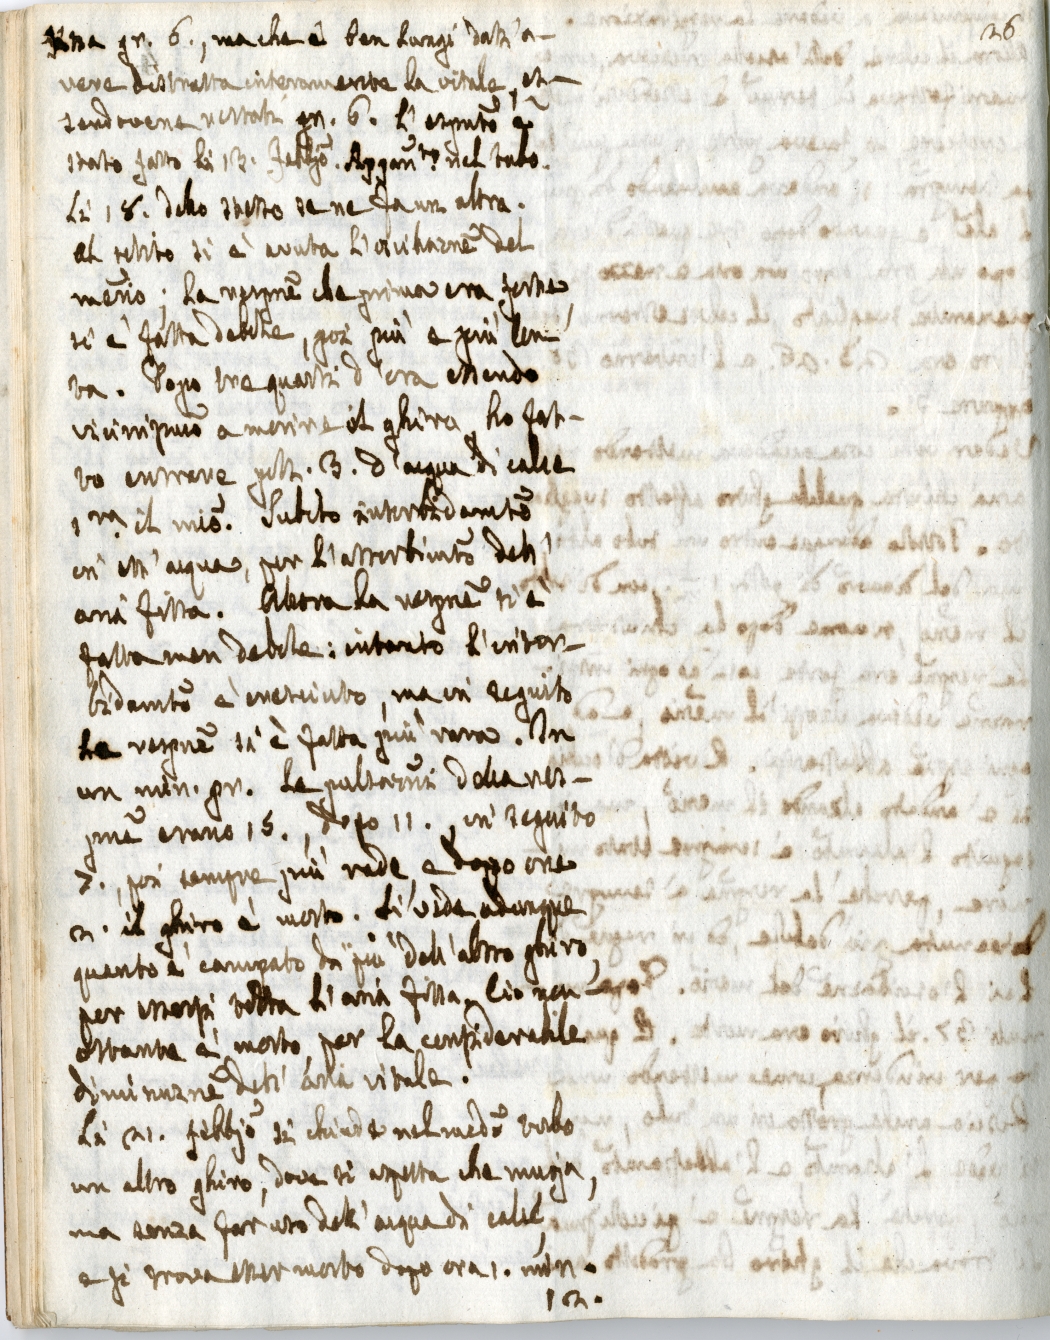 26
fissa gr. 6., ma che è ben lungi dall'a-
vere distrutta interamente la vitale, es-
sendovene restati gr. 6. L'esprim.to è
stato fatto li 13. Febbjo. nel tubo.
Li 18. detto stesso se ne fa un altra.
Al solito si è avuta l'oscillazne del
merio; la respne che prima era forte,
si è fatta debile, poi più e più len-
ta. Dopo tre quarti d'ora essendo
vicinissimo a morire il ghiro, ho fat-
to entrare poll. 3. d'acqua di calce
il mio. Subito intorbidamto
in ess'acqua, per l'assorbimto dell'
aria fissa. Allora la respne si è
fatta men debile: intanto l'intor-
bidamto è cresciuto, ma in seguito
la respne si è fatta più rara. In
un min. pr. le pulsazni della res-
pne erano 15., dopo 11., in seguito
7., poi sempre più rade, e dopo ore
2. il ghiro è morto. Si vede adunque
quanto è campato di più dell'altro ghiro,
per essersi tolta l'aria fissa. Cio non
ostante è morto per la considerabile
diminuzne dell'aria vitale.
Li 21. Febbjo si chiude nel medo tubo
un altro ghiro, dove si aspetta che muoja,
ma senza far uso dell'acqua di calce,
e si trova esser morto dopo ora 1. min.
12.